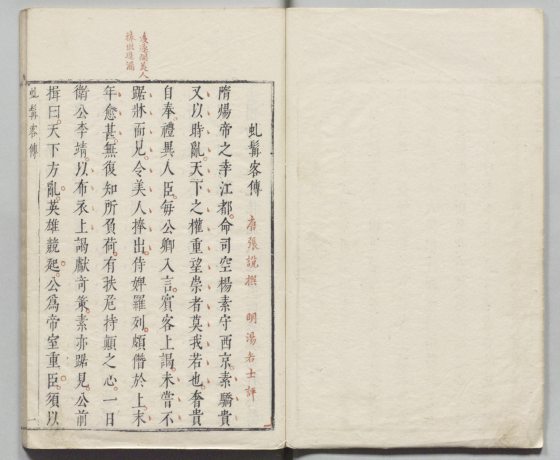 虬髯客傳 唐張說撰 明湯若士評
隋煬帝之幸江都。命司空楊素守西京。素驕貴
又以時亂。天下之權重望崇者莫我若也。奢貴
自奉。禮異人臣。每公卿入言。賓客上謁。未嘗不
踞牀而見。令美人捧出。侍婢羅列。頗僭於上。末
年愈甚。無復知所負荷。有扶危持顛之心。一日
衛公李靖。以布衣上謁獻奇策。素亦踞見。公前
揖曰。天下方亂。英雄競起。公爲帝室重臣。須以
虬髯客傳 一